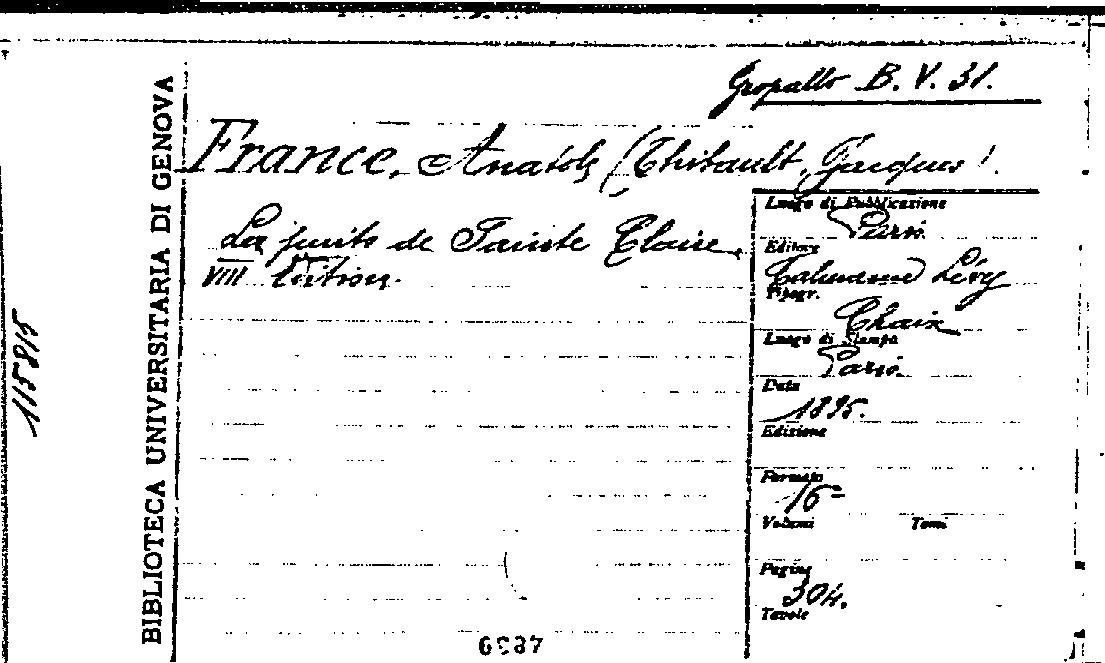 Gropallo B. V. 31.
France, Anatole (Thibault, Jacques).
Le puits de Sainte Claire.
VIII édition.
Luogo di Pubblicazione
Paris.
Editore
Calmann Lévy
Tipogr.
Chaix
Luogo di Stampa
Paris.
Data
1895.
Edizione
Formato
16°
Volumi Tomi
Pagine
304.
Tavole
BIBLIOTECA UNIVERSITARIA DI GENOVA
115815